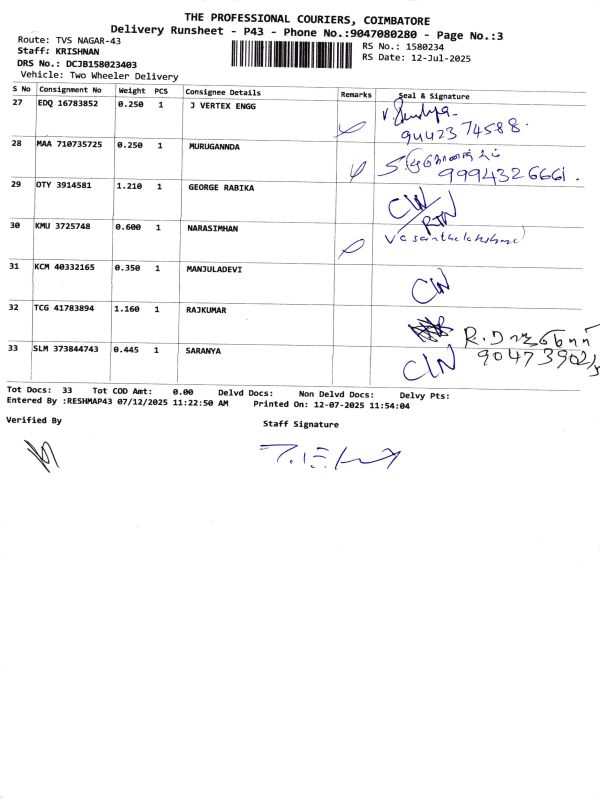 THE PROFESSIONAL COURIERS, COIMBATORE
Delivery Runsheet - P43 - Phone No.:9047080280 - Page No.:3
Route: TVS NAGAR-43
RS No.: 1580234
Staff: KRISHNAN
RS Date: 12-Jul-2025
DRS No.: DCJB158023403
Vehicle: Two Wheeler Delivery
S No Consignment No Weight PCS Consignee Details Remarks Seal & Signature
27 EDQ 16783852 0.250 1 J VERTEX ENGG
9442374588.
28 MAA 710735725 0.250 1 MURUGANNDA
9994326661.
29 OTY 3914581 1.210 1 GEORGE RABIKA CW/RTN
30 KMU 3725748 0.600 1 NARASIMHAN
31 KCM 40332165 0.350 1 MANJULADEVI CW
32 TCG 41783894 1.160 1 RAJKUMAR
33 SLM 373844743 0.445 1 SARANYA CW
Tot Docs: 33 Tot COD Amt: 0.00 Delvd Docs: Non Delvd Docs: Delvy Pts:
Entered By :RESHMAP43 07/12/2025 11:22:50 AM Printed On: 12-07-2025 11:54:04
Verified By
Staff Signature